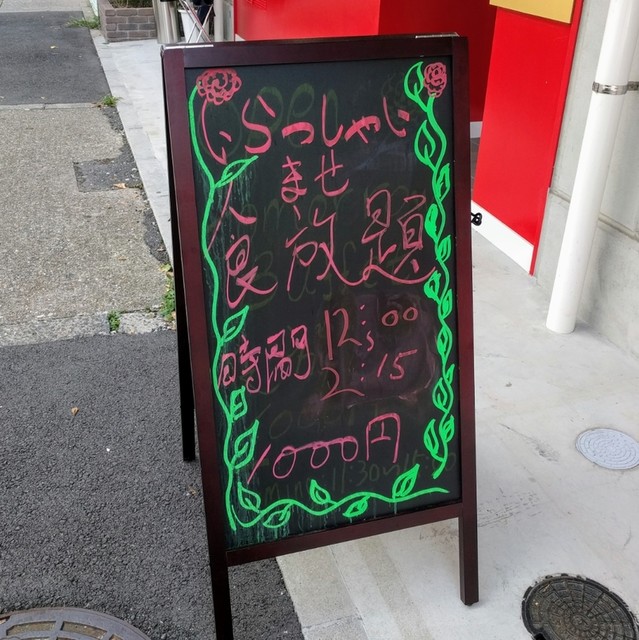 いらっしゃい
ませ
食放題
時間 12:00
2:15
1000円